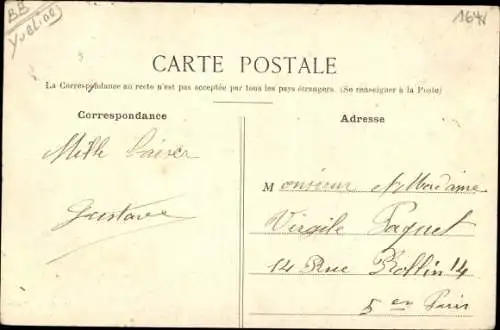 BB
Yvelines
164
CARTE POSTALE
La Correspondance au recto n'est pas acceptée par tous les pays étrangers. (Se renseigner à la Poste)
Correspondance
Adresse
Mille baiser
Gustave
Monsieur et Madame
Virgile Paquet
14 Rue Rollin 14
5 en Paris